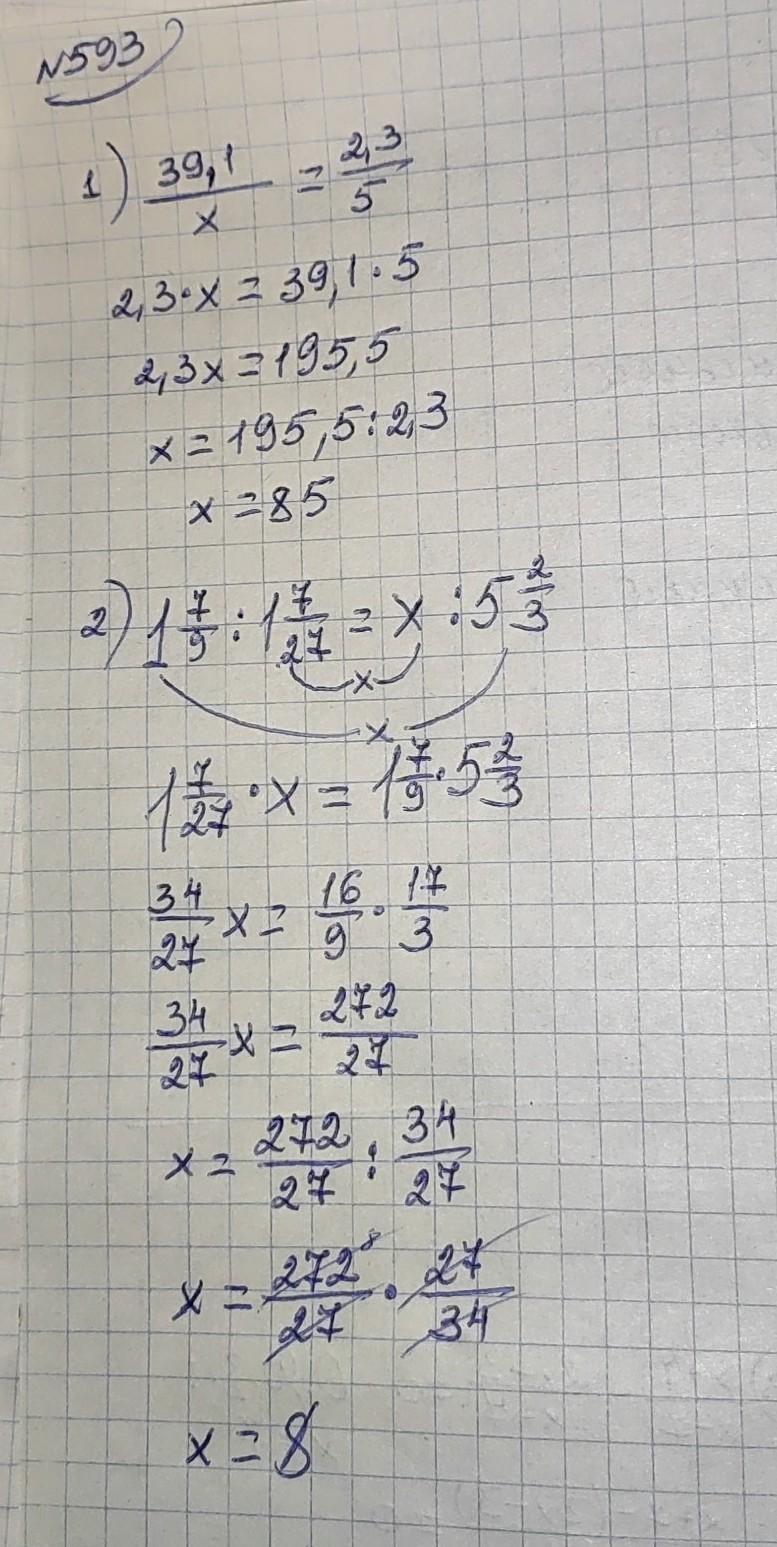 N593
1) 39,1/x = 2,3/5
2,3·x = 39,1·5
2,3x = 195,5
x = 195,5:2,3
x = 85
2) 1 7/9 : 1 7/27 = x : 5 2/3
x
x
1 7/27 · x = 1 7/9 · 5 2/3
34/27 x = 16/9 · 17/3
34/27 x = 272/27
x = 272/27 : 34/27
x = 272 8/27 · 27/34
x = 8